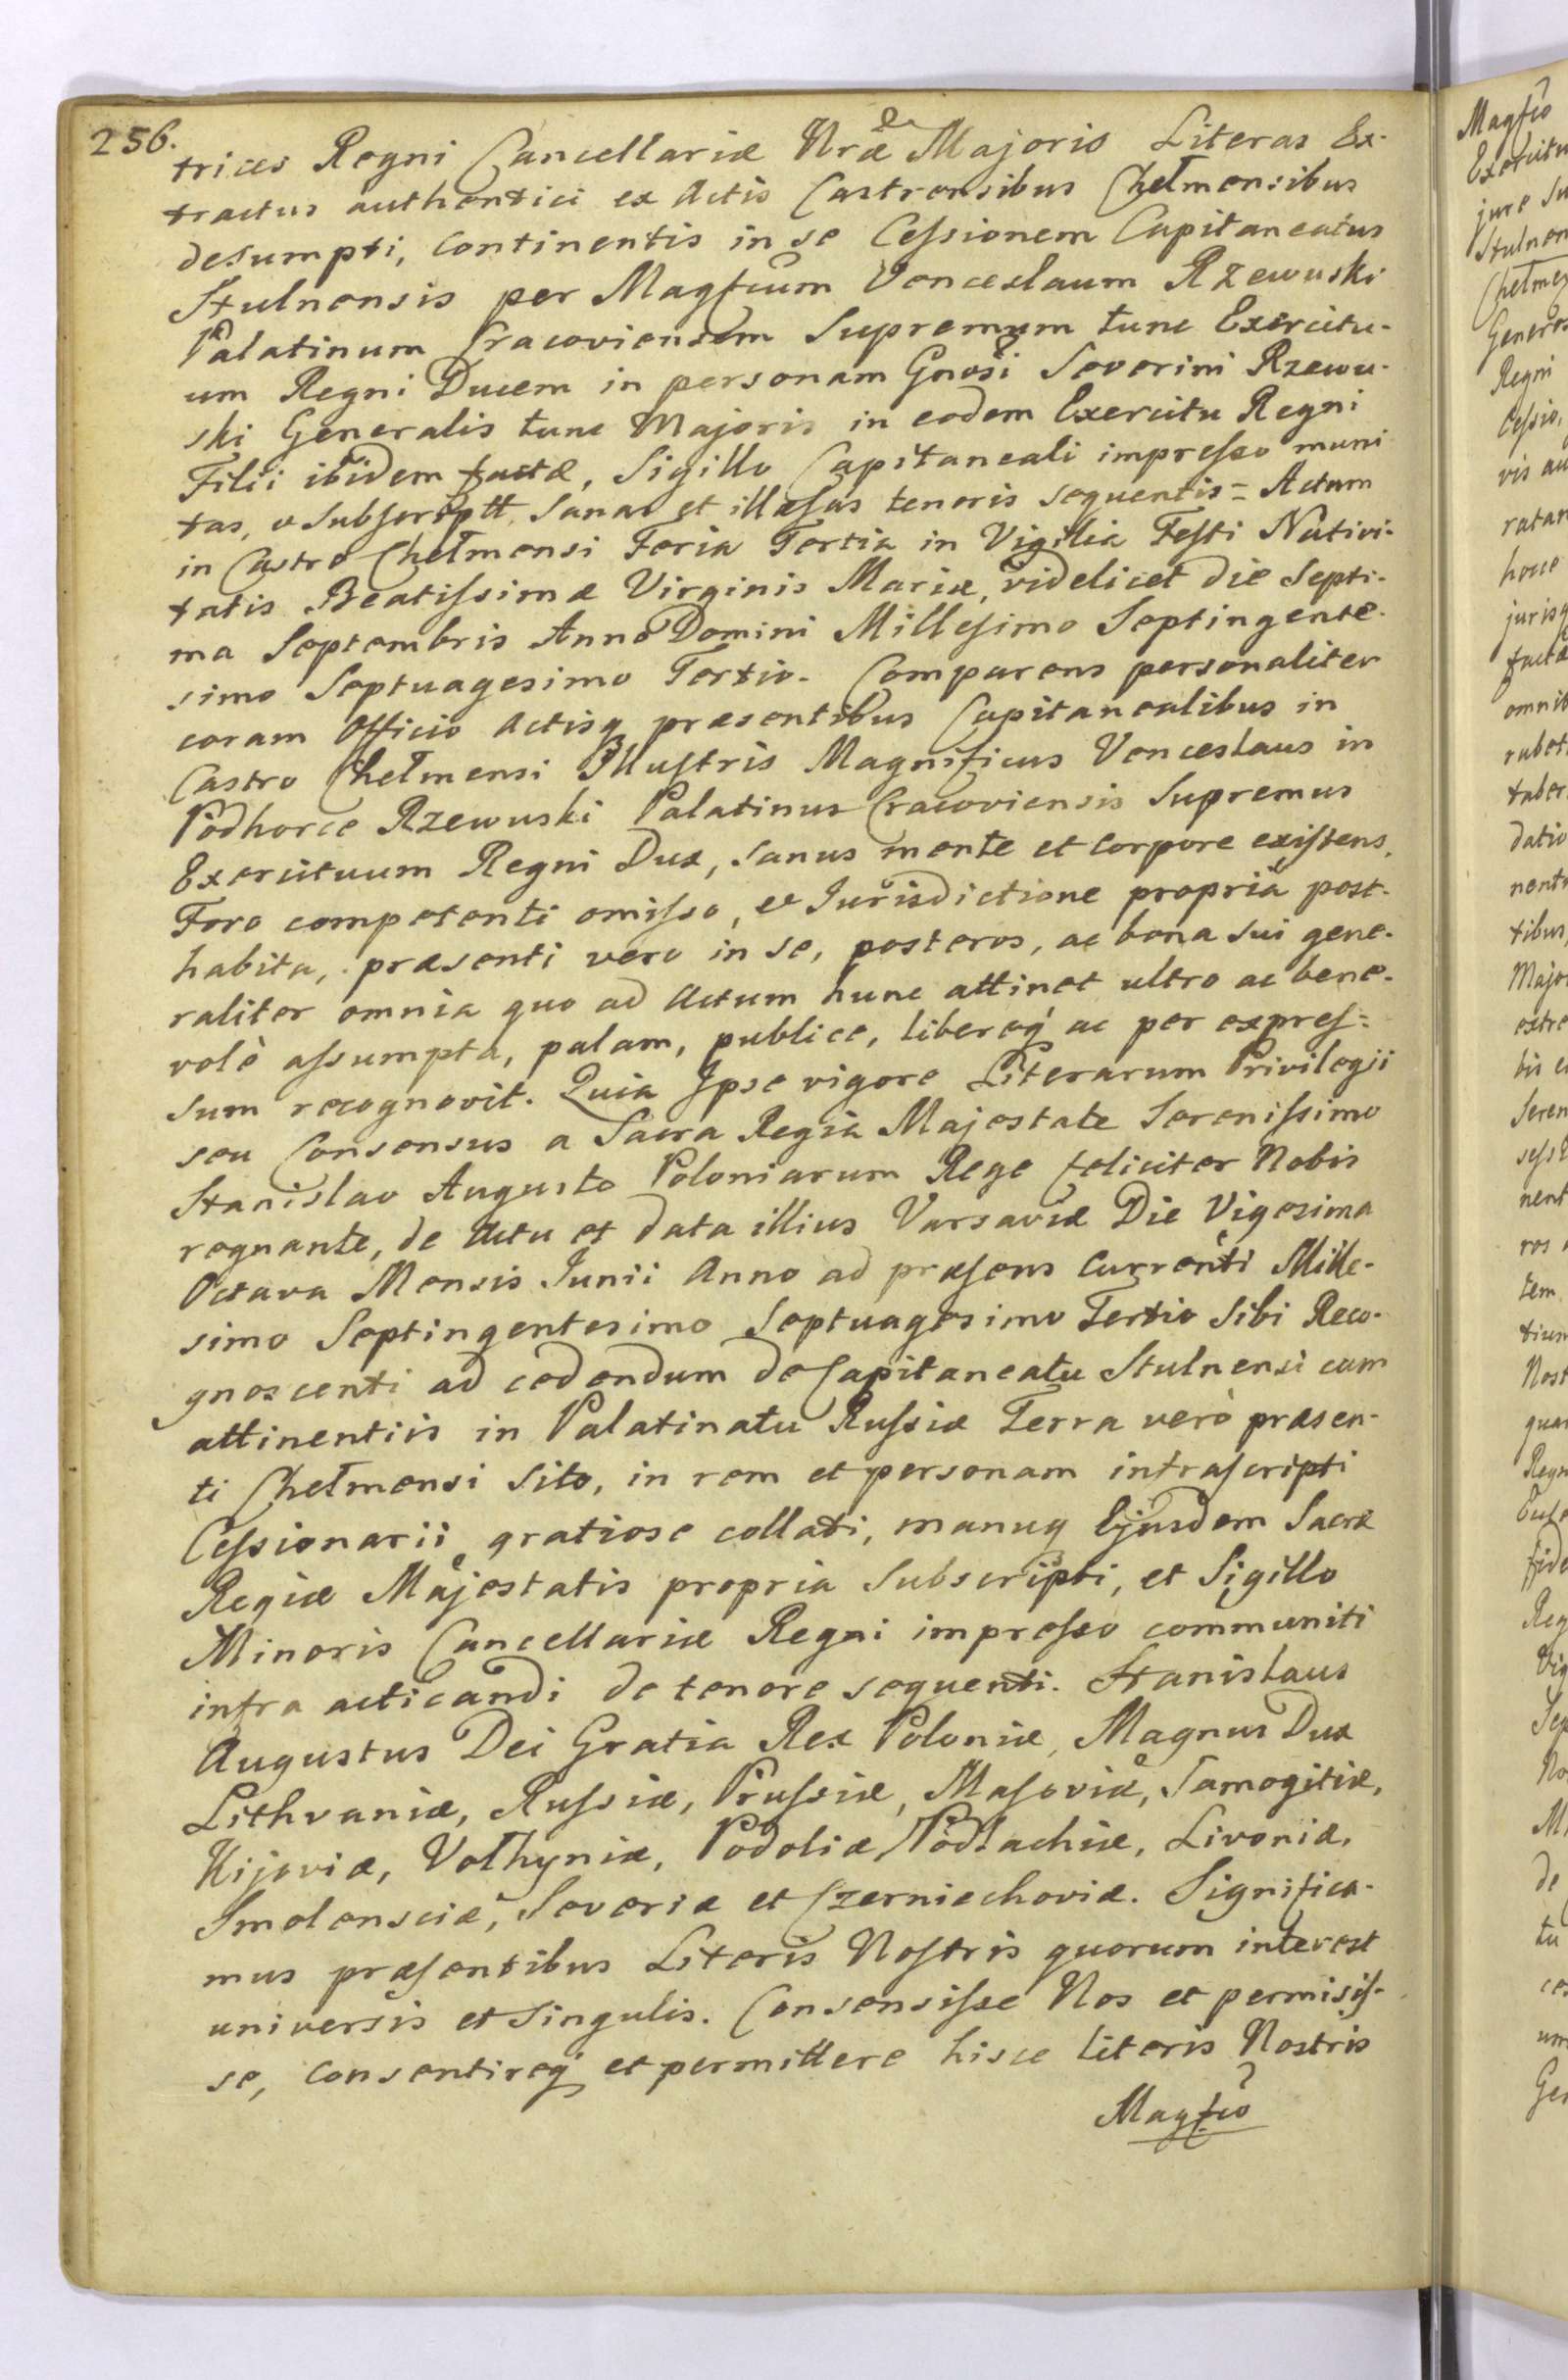 256.
trices Regni Cancellariæ Nræ Majoris Literas Ex-
tractus authentici ex Actis Castrensibus Chełmensibus
desumpti, continentis in se Ceſsionem Capitaneatus
Stulnensis per Magfcum Venceslaum Rzewuski
Palatinum Cracoviensem Supremum tunc Exercitu-
um Regni Ducem in personam Gnosi Severini Rzewu-
ski Generalis tunc Majoris in eodem Exercitu Regni
Filii ibidem factæ, Sigillo Capitaneali impreſso muni
tas, et Subſcriptt, Sanas et illæsas tenoris sequentis = Actum
in Castro Chełmensi Feria Tertia in Vigilia Feſti Nativi-
tatis Beatiſsimæ Virginis Mariæ, videlicet die Septi-
ma Septembris Anno Domini Milleſimo Septingente-
simo Septuagesimo Tertio. Comparens personaliter
coram Officio Actisq præsentibus Capitanealibus in
Castro Chełmensi Illuſtris Magnificus Venceslaus in
Podhorce Rzewuski Palatinus Cracoviensis Supremus
Exercituum Regni Dux, sanus mente et corpore exiſtens,
Foro competenti omiſso, et Jurisdictione propriâ post-
habita, præsenti vero in se, posteros, ac bona sui gene-
raliter omnia quo ad Actum hunc attinet ultro ac bene-
volè aſsumpta, palam, publice, libereq́ ac per expreſ=
sum recognovit. Quia Ipse vigore Literarum Privilegii
seu Consensus a Sacra Regia Majestate Sereniſsimo
Stanislao Augusto Poloniarum Rege feliciter Nobis
regnante, de Actu et data illius Varsaviæ Die Vigesima
Octava Mensis Junii Anno ad præſens Currenti Mille-
simo Septingentesimo Septuagesimo Tertio Sibi Reco-
gnoscenti ad cedendum de Capitaneatu Stulnensi cum
attinentiis in Palatinatu Ruſsiæ Terra verò præsen-
ti Chełmensi Sito, in rem et personam infraſcripti
Ceſsionarii gratiose collati, manuq Ejusdem Sacræ
Regiæ Majestatis propria Subscripti, et Sigillo
Minoris Cancellariæ Regni impreſso communiti
infra acticandi de tenore sequenti. Stanislaus
Augustus Dei Gratia Rex Poloniæ, Magnus Dux
Lithvaniæ, Ruſsiæ, Pruſsiæ, Maſoviæ, Samogitiæ,
Kijoviæ, Volhyniæ, Podoliæ Podlachiæ, Livoniæ,
Smolensciæ, Severiæ et Czerniechoviæ. Significa-
mus præſentibus Literis Noſtris quorum interest
universis et Singulis. Consensiſse Nos et permisiſ-
se, Consentireq́ et permittere hisce literis Nostris
Magfco
Magfco
Exercitu
jure Su
Stulnen
Chełme
Generos
Regni
Ceſsio,
vis au
ratar
hocce
jurisq
factæ
omnib
rubet
taber
datio
nent
tibus,
Majo
extre
Seren
nent
ros
tem
Nost
quas
Regn
fide
Reg
Vig
Sep
No
M
de
tu
Ger